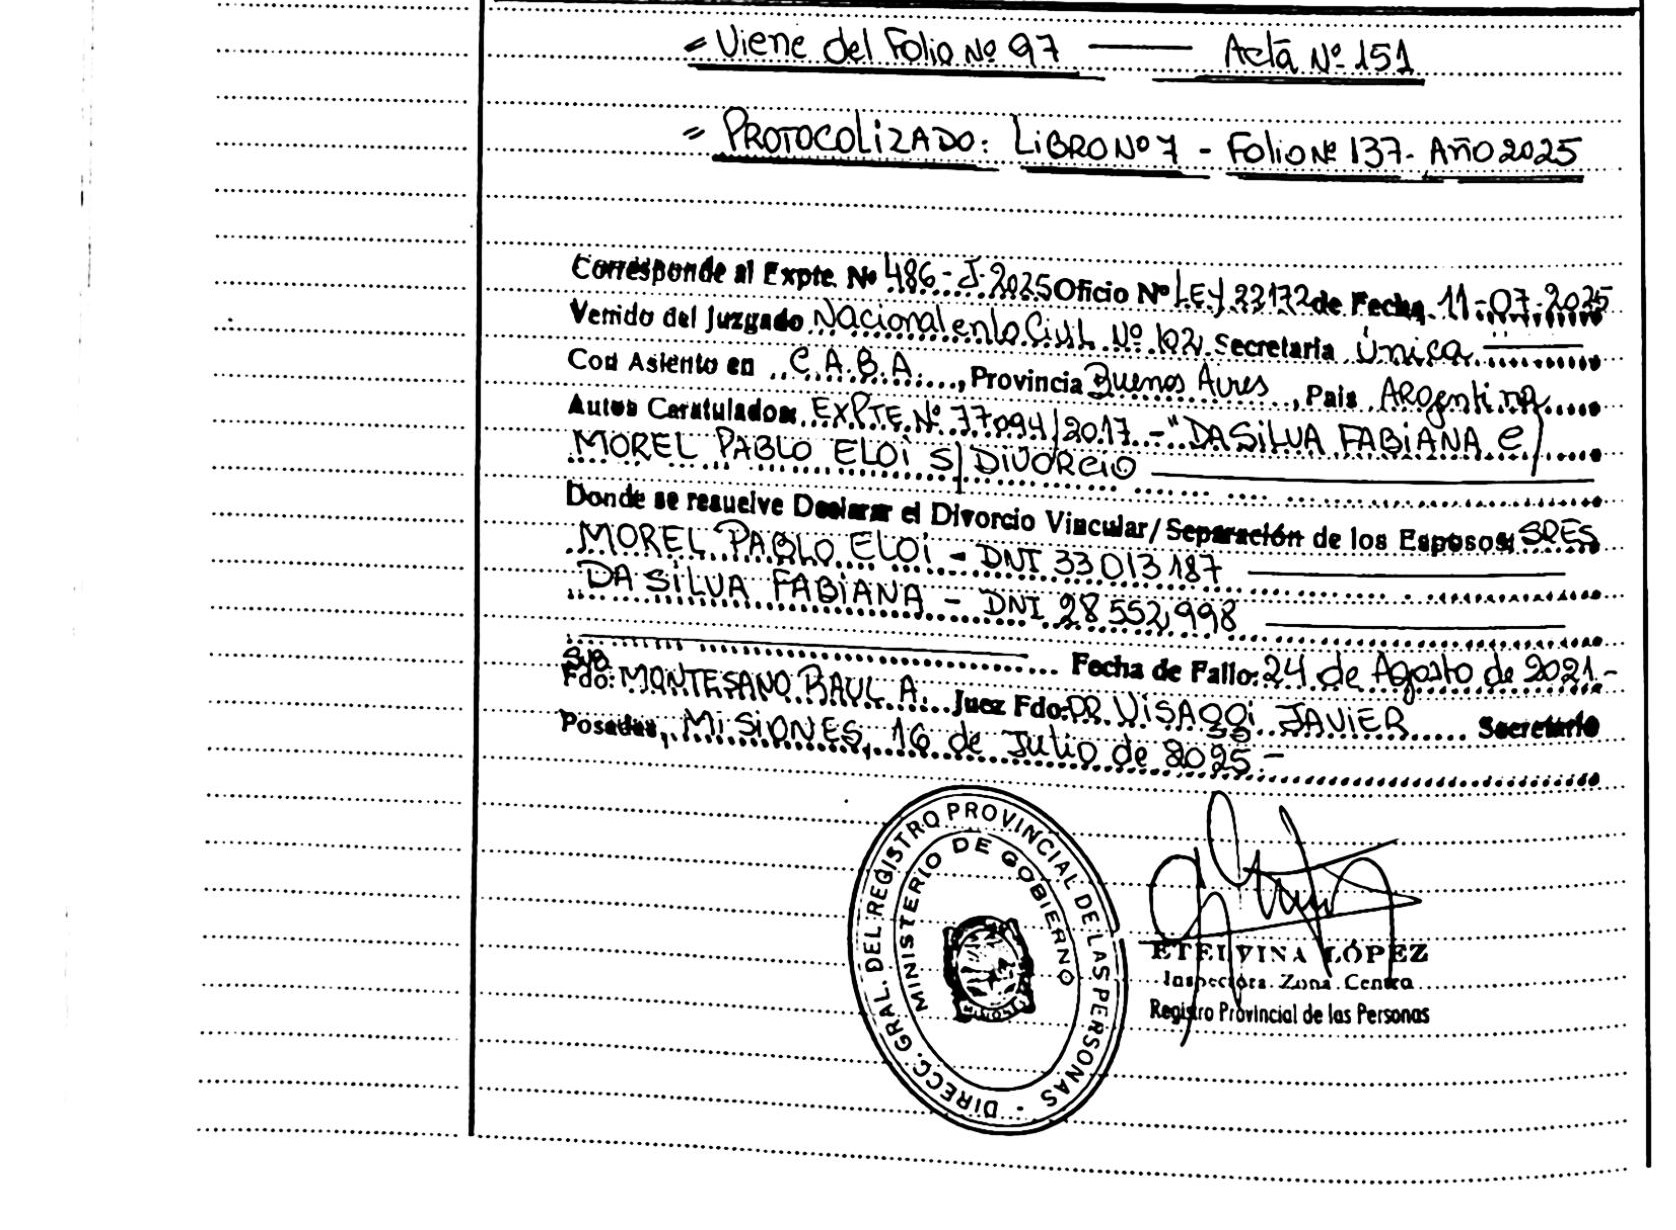 = Viene del Folio Nº 97 —— Acta Nº 151
= PROTOCOLIZADO: LIBRO Nº 7 - Folio Nº 137. AÑO 2025
Corresponde al Expte. Nº 486-J-2025 Oficio Nº LEY 22172 de Fecha 11-07-2025
Venido del Juzgado Nacional en lo Civil Nº 102 Secretaria Única
Con Asiento en C.A.B.A., Provincia Buenos Aires, Pais Argentina
Autos Caratulados: EXPTE. Nº 77094/2017 - "DA SILVA FABIANA C/
MOREL PABLO ELOI S/ DIVORCIO
Donde se resuelve Declarar el Divorcio Vincular/Separación de los Esposos: SRES
MOREL PABLO ELOI - DNI 33013187
DA SILVA FABIANA - DNI 28552998
Fecha de Fallo: 24 de Agosto de 2021.-
Fdo: MONTESANO RAUL A. Juez Fdo: DR VISAGGI JAVIER Secretario
Posadas, MISIONES, 16 de Julio de 2025.-
DIRECC. GRAL. DEL REGISTRO PROVINCIAL DE LAS PERSONAS -
MINISTERIO DE GOBIERNO
ETELVINA LÓPEZ
Inspectora Zona Centro
Registro Provincial de las Personas